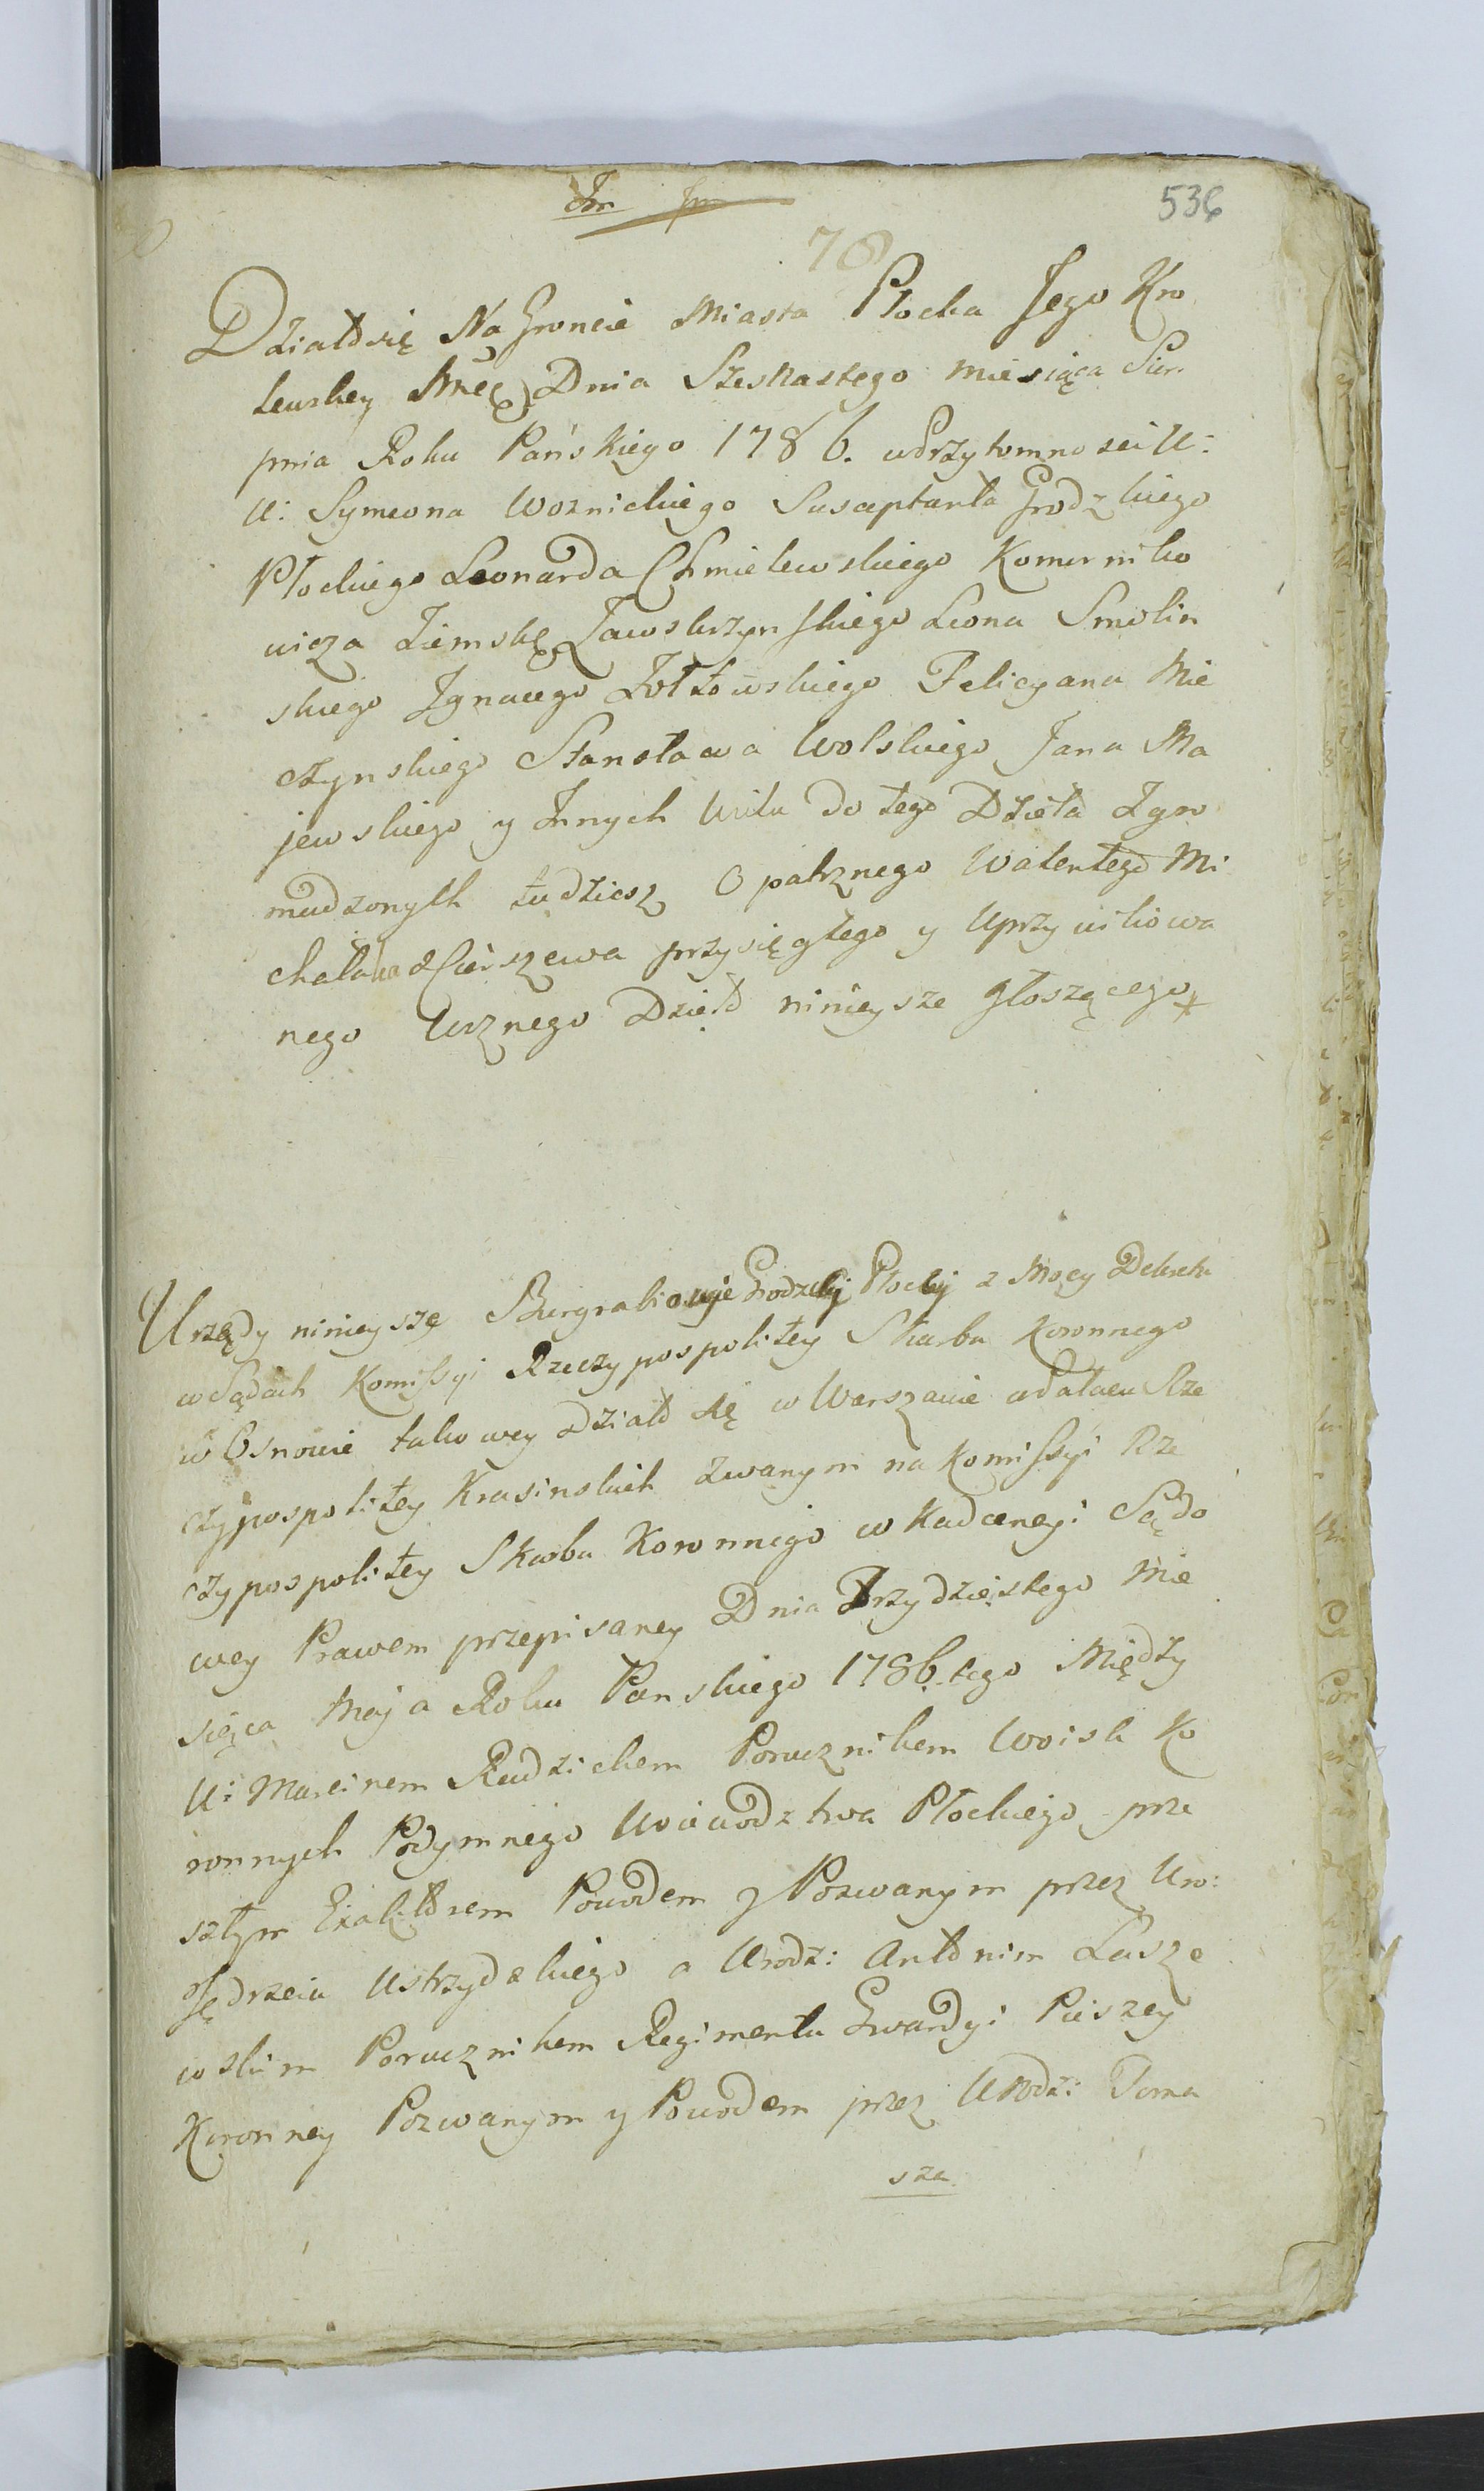 536
78
Działo się Na Groncie Miasta Płocka Jego Kro
lewskiey Mści Dnia Szesnastego miesiąca Sier
pnia Roku Pańskiego 1786. w Przytomności U:
U: Symeona Woznickiego Susceptanta Grodzkiego
Płockiego Leonarda Chmielewskiego Komorniko
wicza Ziemskę Zawskrzynskiego Leona Smolin
skiego Ignacego Zołtowskiego Felicyana Mie
czynskiego Stanisława Wolskiego Jana Ma
jewskiego y Innych wielu do tego Dzieła Zgro
madzonych tudziesz Opatrznego Walentego Mi
chalaka z Cierszewa przysięgłego y Uprzywiliowa
nego Woznego Dzieło nineysze głoszącego
Urzędy ninieysze Burgrabiowie Grodzcy Płoccy z Mocy Dekretu
w Sądach Komissyi Rzeczypospolitey Skarbu Koronnego
w Osnowie takowey Działo się w Warszawie w Pałacu Rze
czypospolitey Krasinskich zwanym na Komissyi Rze
czypospolitey Skarbu Koronnego w Kadencyi Sądo
wey Prawem przepisaney Dnia Trzydziestego Mie
siąca Maja Roku Panskiego 1786. tego Między
U: Marcinem Rudzickem Porucznikem Woisk Ko
ronnych Podymnego Woiewodztwa Płockiego prze
szłym Exaktorem Powodem y Pozwanym przez Uro:
Jędrzeia Ustrzydzkiego a Urodz: Antonim Łasze
wskim Porucznikem Regimentu Gwardyi Pieszey
Koronney Pozwanym y Powodem przez Urodz: Toma
sza